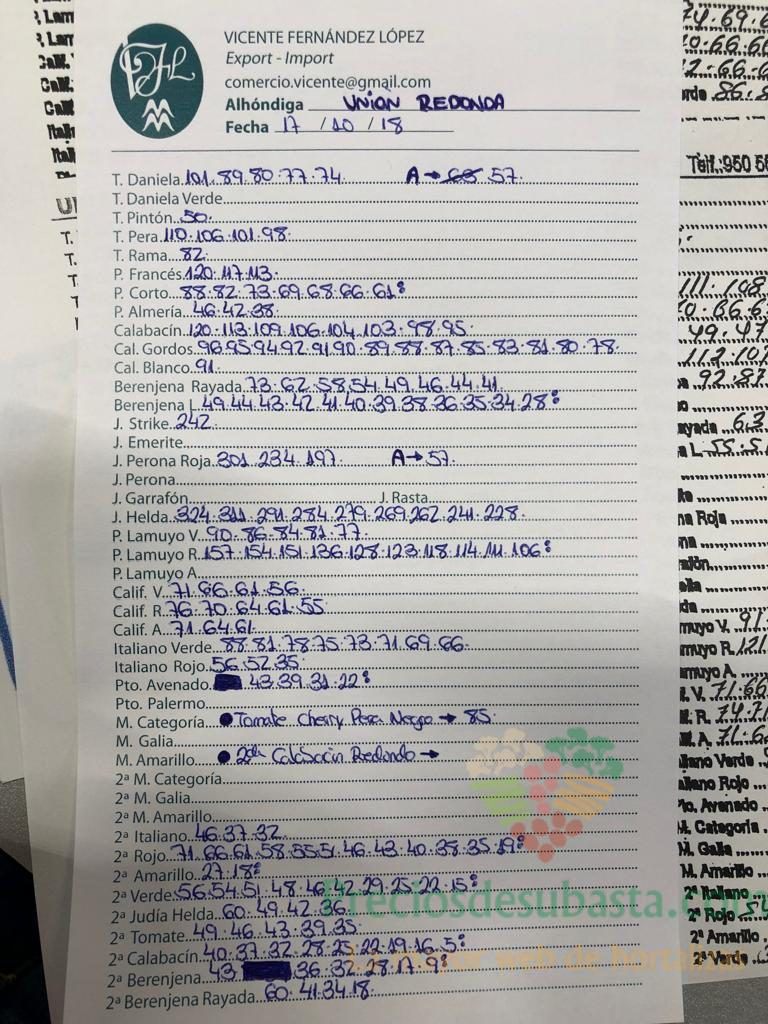 VICENTE FERNÁNDEZ LÓPEZ
Export - Import
comercio.vicente@gmail.com
Alhóndiga UNIÓN REDONDA
Fecha 17 / 10 / 18
T. Daniela 101.89.80.77.74. A→ 57.
T. Daniela Verde
T. Pintón 50.
T. Pera 110.106.101.98.
T. Rama 82.
P. Francés 120.117.113.
P. Corto 88.82.73.69.68.66.61:
P. Almería 46.42.38.
Calabacín 120.113.109.106.104.103.98.95.
Cal. Gordos 96.95.94.92.91.90.89.88.87.85.83.81.80.78.
Cal. Blanco 91.
Berenjena Rayada 73.62.58.54.49.46.44.41.
Berenjena L 49.44.43.42.41.40.39.38.36.35.34.28:
J. Strike 242.
J. Emerite
J. Perona Roja 301.234.197. A→57.
J. Perona
J. Garrafón J. Rasta
J. Helda 324.311.291.284.279.269.262.241.228.
P. Lamuyo V. 90.86.84.81.77.
P. Lamuyo R. 157.154.151.136.128.123.118.114.111.106:
P. Lamuyo A
Calif. V. 71.66.61.56.
Calif. R. 76.70.64.61.55
Calif. A. 71.64.61.
Italiano Verde 88.81.78.75.73.71.69.66.
Italiano Rojo 56.52.35.
Pto. Avenado 43.39.31.22:
Pto. Palermo
M. Categoría • Tomate Cherry Pera Negro → 85.
M. Galia
M. Amarillo • 2da Calabacín Redondo →
2ª M. Categoría
2ª M. Galia
2ª M. Amarillo
2ª Italiano 46.37.32.
2ª Rojo 71.66.61.58.55.51.46.43.40.38.35.19:
2ª Amarillo 27.18:
2ª Verde 56.54.51.48.46.42.29.25.22.15:
2ª Judía Helda 60.49.42.36.
2ª Tomate 49.46.43.39.35.
2ª Calabacín 40.37.32.28.25.22.19.16.5:
2ª Berenjena 43. 36.32.28.17.9:
2ª Berenjena Rayada 60.41.34.18.
Preciosdesubasta.com